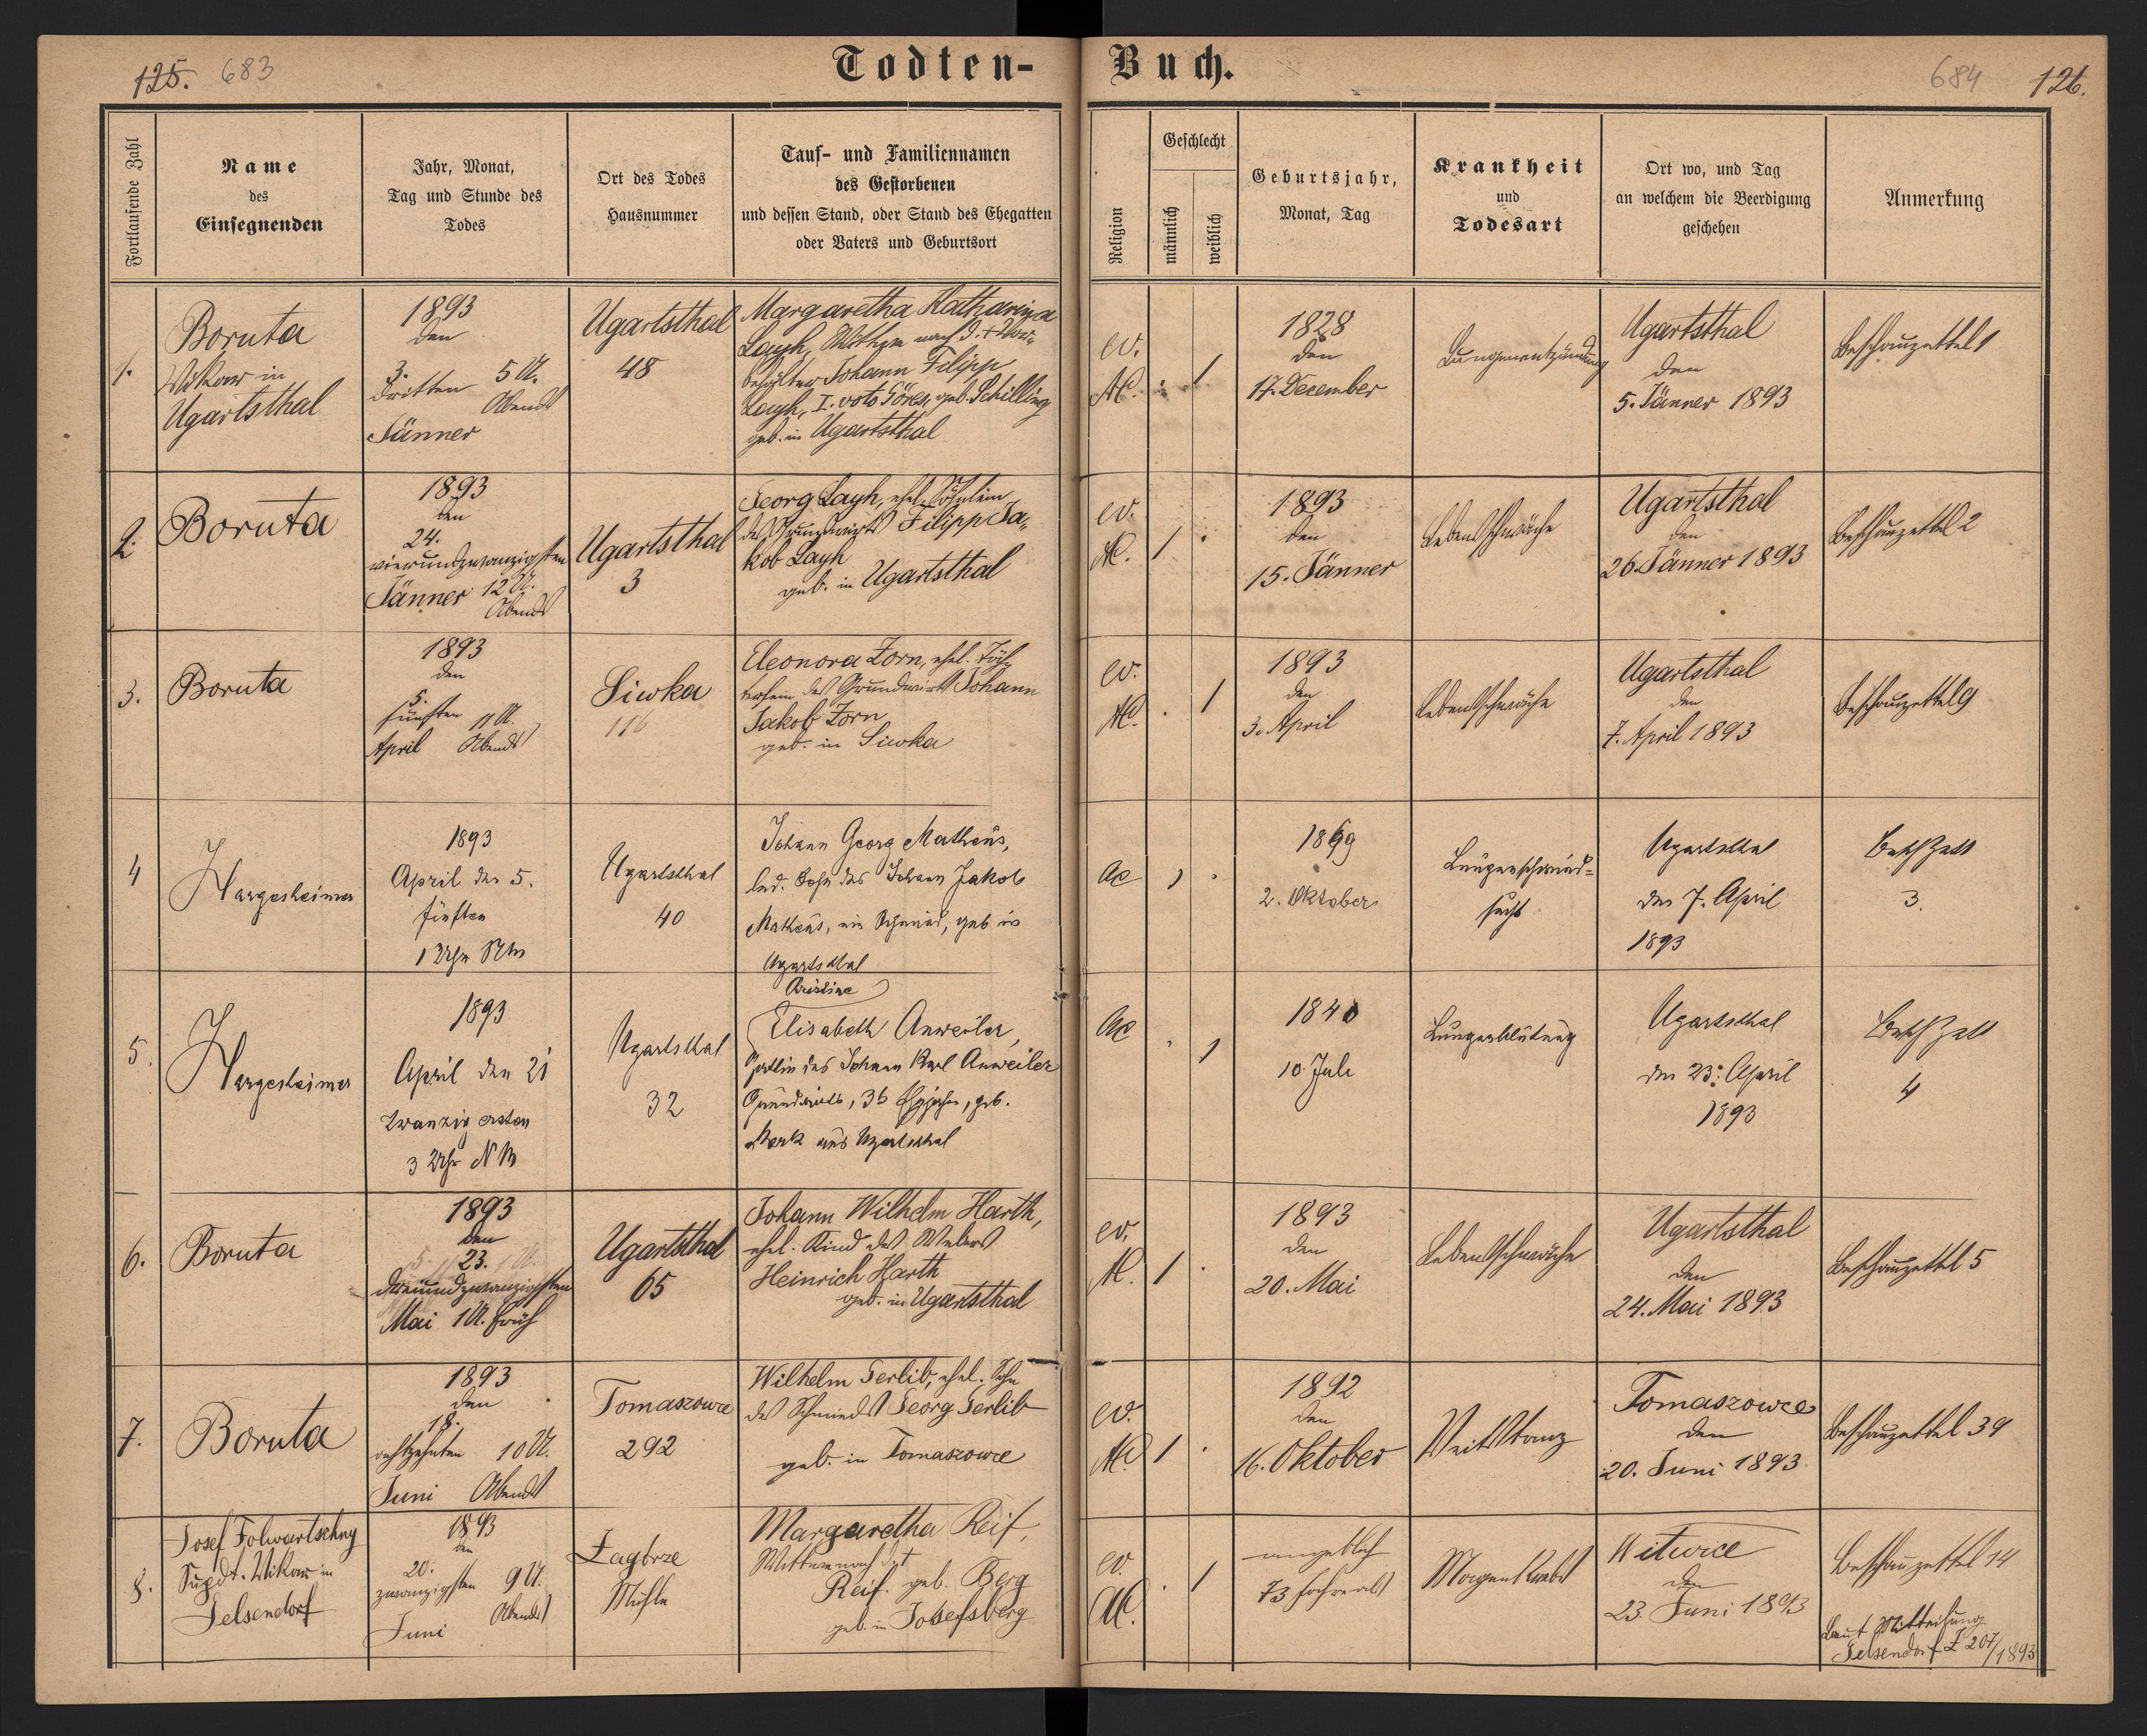 125. 683
Todten-
Buch.
684 126.
Fortlaufende Zahl
Name
des
Einsegnenden
Jahr, Monat,
Tag und Stunde des
Todes
Ort des Todes
Hausnummer
Tauf- und Familiennamen
des Gestorbenen
und dessen Stand, oder Stand des Ehegatten
oder Vaters und Geburtsort
Religion
Geschlecht
männlich
weiblich
Geburtsjahr,
Monat, Tag
Krankheit
und
Todesart
Ort wo, und Tag
an welchem die Beerdigung
geschehen
Anmerkung
1.
Boruta
Vikar in
Ugartsthal
1893
den
3.
dritten 5 U.
Abends
Jänner
Ugartsthal
48
Margaretha Katharina
Layh, Witwe nach d. +
Johann Filipp
Layh, I. voto Göres, geb. Schilling
geb. in Ugartsthal
ev.
AC.
1
1828
den
17. December
Lungenentzündung
Ugartsthal
den
5. Jänner 1893
Beschauzettel 1
2.
Boruta
1893
den
24.
vierundzwanzigsten
Jänner 12 U.
Abends
Ugartsthal
3
Georg Layh, ehel. Söhnlein
des Grundwirts Filipp Ja-
kob Layh
geb. in Ugartsthal
ev.
AC.
1
1893
den
15. Jänner
Lebensschwäche
Ugartsthal
den
26. Jänner 1893
Beschauzettel 2
3.
Boruta
1893
den
5.
fünften 11 U.
April Abends
Siwka
116
Eleonora Zorn, ehel. Töch-
terlein des Grundwirts Johann
Jakob Zorn
geb. in Siwka
ev.
AC.
1
1893
den
3. April
Lebensschwäche
Ugartsthal
den
7. April 1893
Beschauzettel 9
4
Hargesheimer
1893
April den 5.
fünften
1 Uhr
Ugartsthal
40
Johann Georg Matheus,
led. Sohn des Johann Jakob
Matheus, ein Schmied, geb in
Ugartsthal
AC
1
1869
2. Oktober
Lungenschwind-
sucht
Ugartsthal
den 7. April
1893
Besch Zett
3.
5.
Hargesheimer
1893
April den 21
zwanzig ersten
3 Uhr NM
Ugartsthal
32
Christine
Elisabeth Anweiler,
Gattin des Johann Karl Anweiler
Grundwirts, 36 geb.
Merk aus Ugartsthal
AC
1
1840
10. Juli
Lungenblutung
Ugartsthal
den 23. April
1893
Besch Zett
4
6.
Boruta
1893
den
23.
dreiundzwanzigsten
Mai 1 U. früh
Ugartsthal
65
Johann Wilhelm Harth,
ehel. Kind des Webers
Heinrich Harth
geb. in Ugartsthal
ev.
AC.
1
1893
den
20. Mai
Lebensschwäche
Ugartsthal
den
24. Mai 1893
Beschauzettel 5
7.
Boruta
1893
den
18.
achtzehnten 10 U.
Juni Abends
Tomaszowce
292
Wilhelm Gerlib, ehel. Sohn
des Schmieds Georg Gerlib
geb. in Tomaszowce
ev.
AC
1
1892
den
16. Oktober
Veitstanz
Tomaszowce
den
20. Juni 1893
Beschauzettel 39
8.
Josef Folwartschny
Supdt. Vikar in
Gelsendorf
1893
den
20.
zwanzigsten 9 U.
Abends
Juni
Zagbrze
Mühle
Margaretha Reif,
Witwe nach
Reif. geb. Berg
geb. in Josefsberg
ev.
AC.
1
angeblich
73 Jahre alt
Magenkrebs
Witwice
den
23. Juni 1893
Beschauzettel 14
Laut Mitteilung
Gelsendorf Z 207/1893